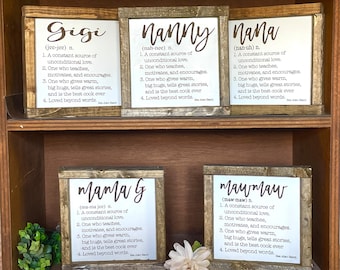 Gigi
n.
1. A constant source of
unconditional love.
2. One who teaches,
motivates, and encourages.
3. One who gives warm,
big hugs, tells great stories,
and is the best cook ever
4. Loved beyond words.
Nanny
n.
1. A constant source of
unconditional love.
2. One who teaches,
motivates, and encourages.
3. One who gives warm,
big hugs, tells great stories,
and is the best cook ever
4. Loved beyond words.
Nana
n.
1. A constant source of
unconditional love.
2. One who teaches,
motivates, and encourages.
3. One who gives warm,
big hugs, tells great stories,
and is the best cook ever
4. Loved beyond words.
mama g
n.
1. A constant source of
unconditional love.
2. One who teaches,
motivates, and encourages.
3. One who gives warm,
big hugs, tells great stories,
and is the best cook ever
4. Loved beyond words.
mawmaw
(maw-maw) n.
1. A constant source of
unconditional love.
2. One who teaches,
motivates, and encourages.
3. One who gives warm,
big hugs, tells great stories,
and is the best cook ever
4. Loved beyond words.